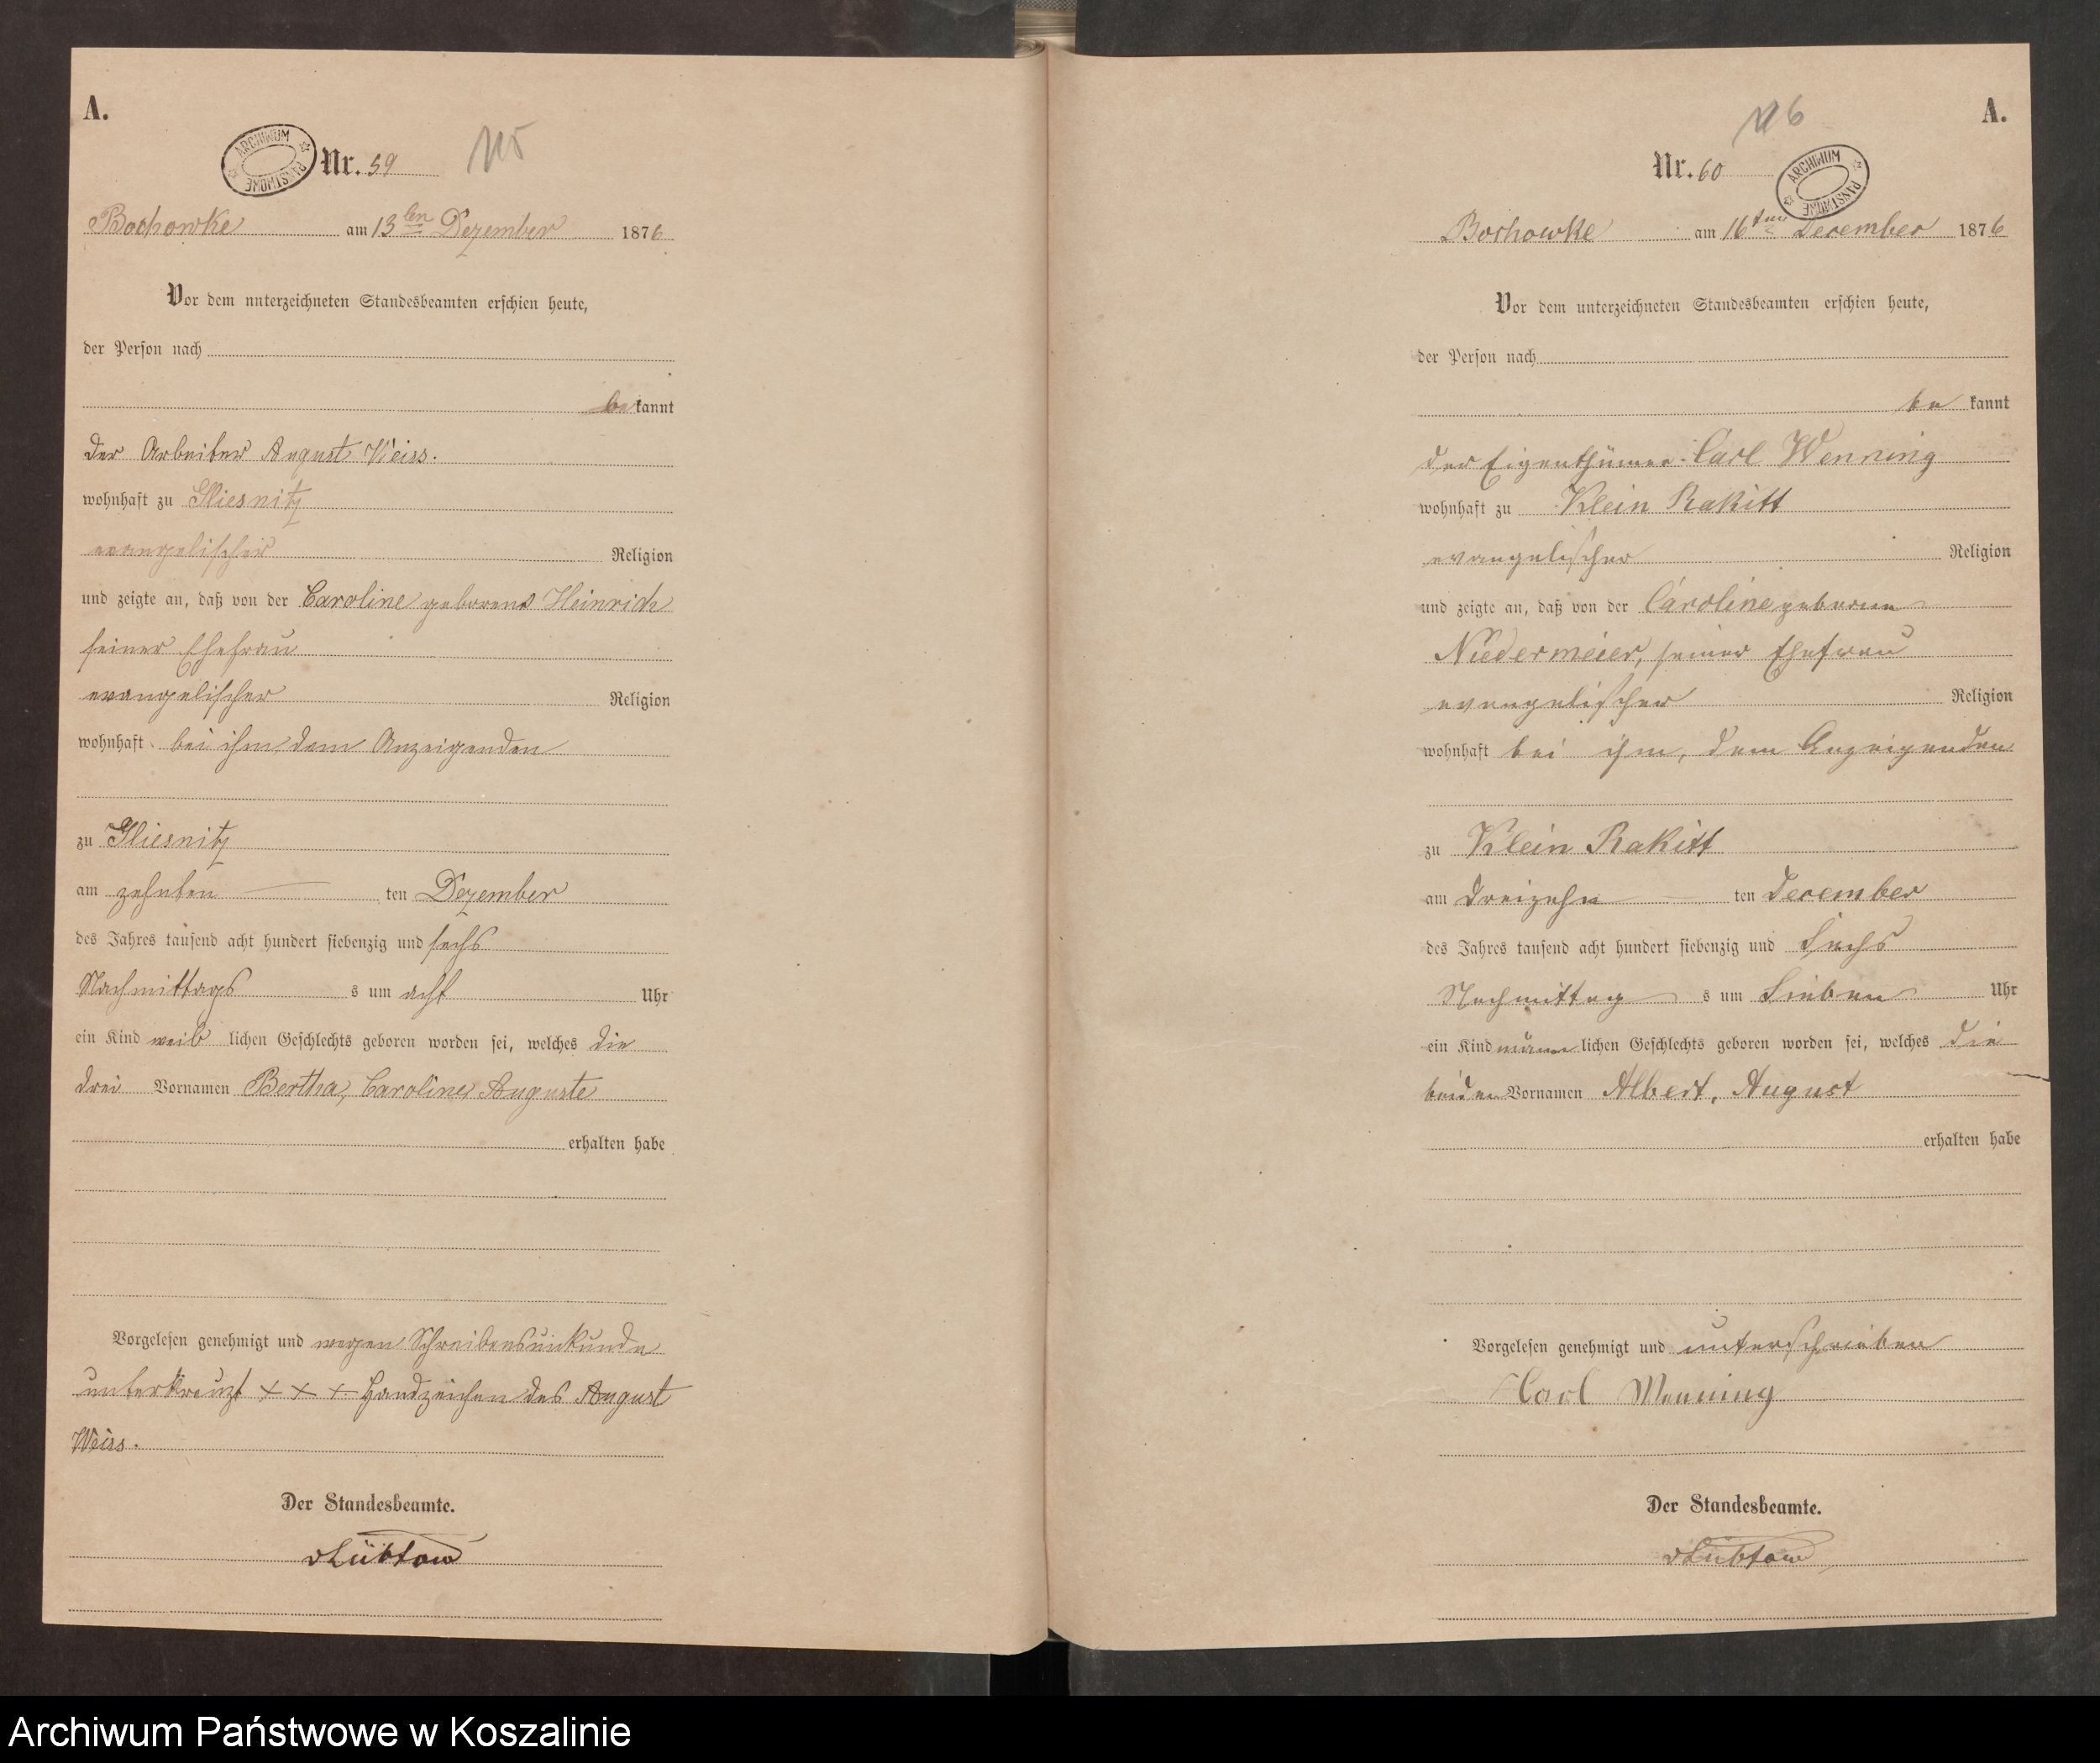 A.
ARCHIWUM PAŃSTWOWE
Nr. 59
115
Bochowke am 13ten Dezember 1876
Vor dem unterzeichneten Standesbeamten erschien heute,
der Person nach
bekannt
der Arbeiter August Weiss.
wohnhaft zu Gliesnitz
evangelischer Religion
und zeigte an, daß von der Caroline geborene Heinrich
seiner Ehefrau
evangelischer Religion
wohnhaft bei ihm dem Anzeigenden
zu Gliesnitz
am zehnten ten Dezember
des Jahres tausend acht hundert siebenzig und sechs
Nachmittags s um acht Uhr
ein Kind weib lichen Geschlechts geboren worden sei, welches die
drei Vornamen Bertha, Caroline, Auguste
erhalten habe
Vorgelesen genehmigt und wegen Schreibensunkunde
unterkreuzt + + + Handzeichen des August
Weiss.
Der Standesbeamte.
vLübtow
116
A.
Nr. 60
ARCHIWUM PAŃSTWOWE
Bochowke am 16ten December 1876
Vor dem unterzeichneten Standesbeamten erschien heute,
der Person nach
be kannt
der Eigenthümer Carl Wenning
wohnhaft zu Klein Rakitt
evangelischer Religion
und zeigte an, daß von der Caroline geborene
Niedermeier, seiner Ehefrau
evangelischer Religion
wohnhaft bei ihm, dem Anzeigenden
zu Klein Rakitt
am dreizehn ten December
des Jahres tausend acht hundert siebenzig und sechs
Nachmittag s um sieben Uhr
ein Kind männ lichen Geschlechts geboren worden sei, welches die
beiden Vornamen Albert, August
erhalten habe
Vorgelesen genehmigt und unterschrieben
Carl Wenning
Der Standesbeamte.
vLübtow
Archiwum Państwowe w Koszalinie